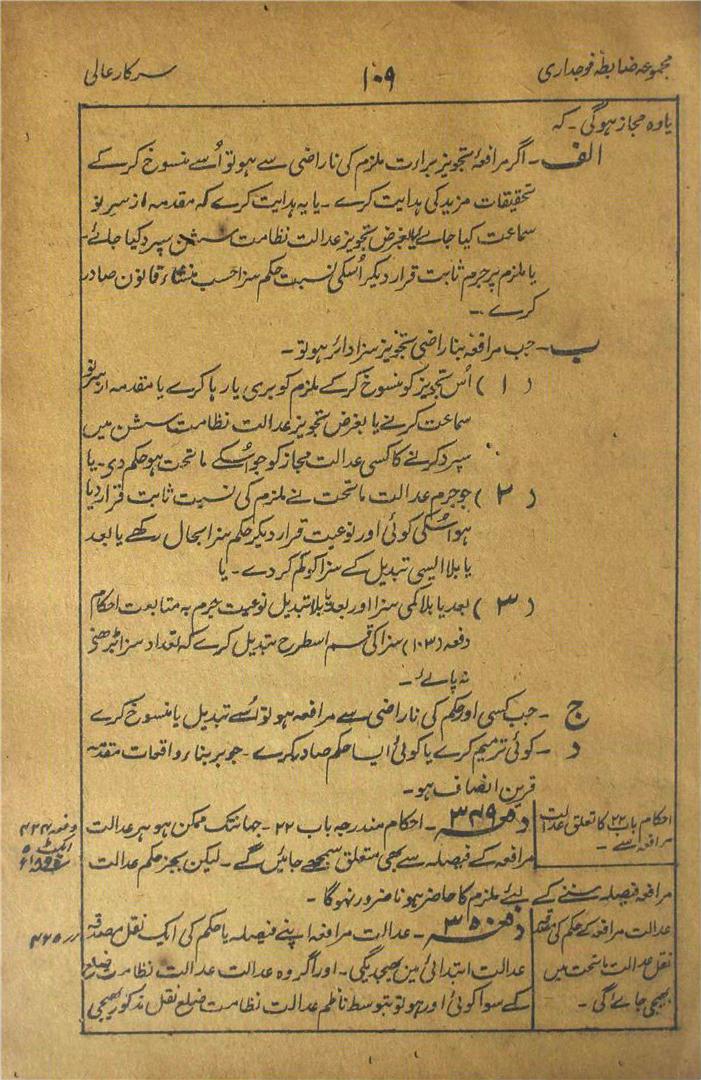 مجموعہ ضابطہ فوجداری
۱۰۹
سرکار عالی
یا وہ مجاز ہوگی۔ کہ
الف۔ اگر مرافعۂ تجویز براءت ملزم کی ناراضی سے ہو تو اُسے منسوخ کرکے
تحقیقات مزید کی ہدایت کرے۔ یا یہ ہدایت کرے کہ مقدمہ از سر نو
سماعت کیا جائے یا بغرض تجویز عدالت نظامت سشن سپرد کیا جائے۔
یا ملزم پر جرم ثابت قرار دیکر اُسکی نسبت حکم سزا حسب منشاء قانون صادر
کرے۔
ب۔ جب مرافعہ بناراضی تجویز سزا دائر ہو تو۔
(۱) اُس تجویز کو منسوخ کرکے ملزم کو بری یا رہا کرے یا مقدمہ از سر نو
سماعت کرنے یا بغرض تجویز عدالت نظامت سشن میں
سپرد کرنے کا کسی عدالت مجاز کو جو اُسکے ماتحت ہو حکم دی۔ یا
(۲) جو جرم عدالت ماتحت نے ملزم کی نسبت ثابت قرار دیا
ہو اُسکی کوئی اور نوعیت قرار دیکر حکم سزا بحال رکھے یا بعد
یا بلا ایسی تبدیل کے سزا کو کم کر دے۔ یا
(۳) بعد یا بلا کمی سزا اور بعد یا بلا تبدیل نوعیت جرم بہ متابعت احکام
دفعہ (۱۰۳) سزا کی قسم اسطرح تبدیل کرے کہ تعداد سزا بڑھنے
نہ پائے۔
ج۔ جب کسی اور حکم کی ناراضی سے مرافعہ ہو تو اُسے تبدیل یا منسوخ کرے
د۔ کوئی ترمیم کرے یا کوئی ایسا حکم صادر کرے۔ جو بر بناء واقعات مقدمہ
قرین انصاف ہو۔
احکام باب ۲۲ کا تعلق عدالت
مرافعہ سے۔
دفعہ ۳۴۹۔ احکام مندرجہ باب ۲۲۔ جہانتک ممکن ہو ہر عدالت
مرافعہ کے فیصلہ سے بھی متعلق سمجھے جائیں گے۔ لیکن بجز حکم عدالت
دفعہ ۴۲۴
ایکٹ ۵
۱۸۹۸ء
مرافعہ فیصلہ سننے کے لیئے ملزم کا حاضر ہونا ضرور نہوگا۔
عدالت مرافعہ کے حکم کی مصدقہ
نقل عدالت ماتحت میں
بھیجی جائے گی۔
دفعہ ۳۵۰۔ عدالت مرافعہ اپنے فیصلہ یا حکم کی ایک نقل مصدقہ
عدالت ابتدائی میں بھیجے گی۔ اور اگر وہ عدالت عدالت نظامت ضلع
کے سوا کوئی اور ہو تو بتوسط ناظم عدالت نظامت ضلع نقل مذکور بھیجی
رر ۴۲۵